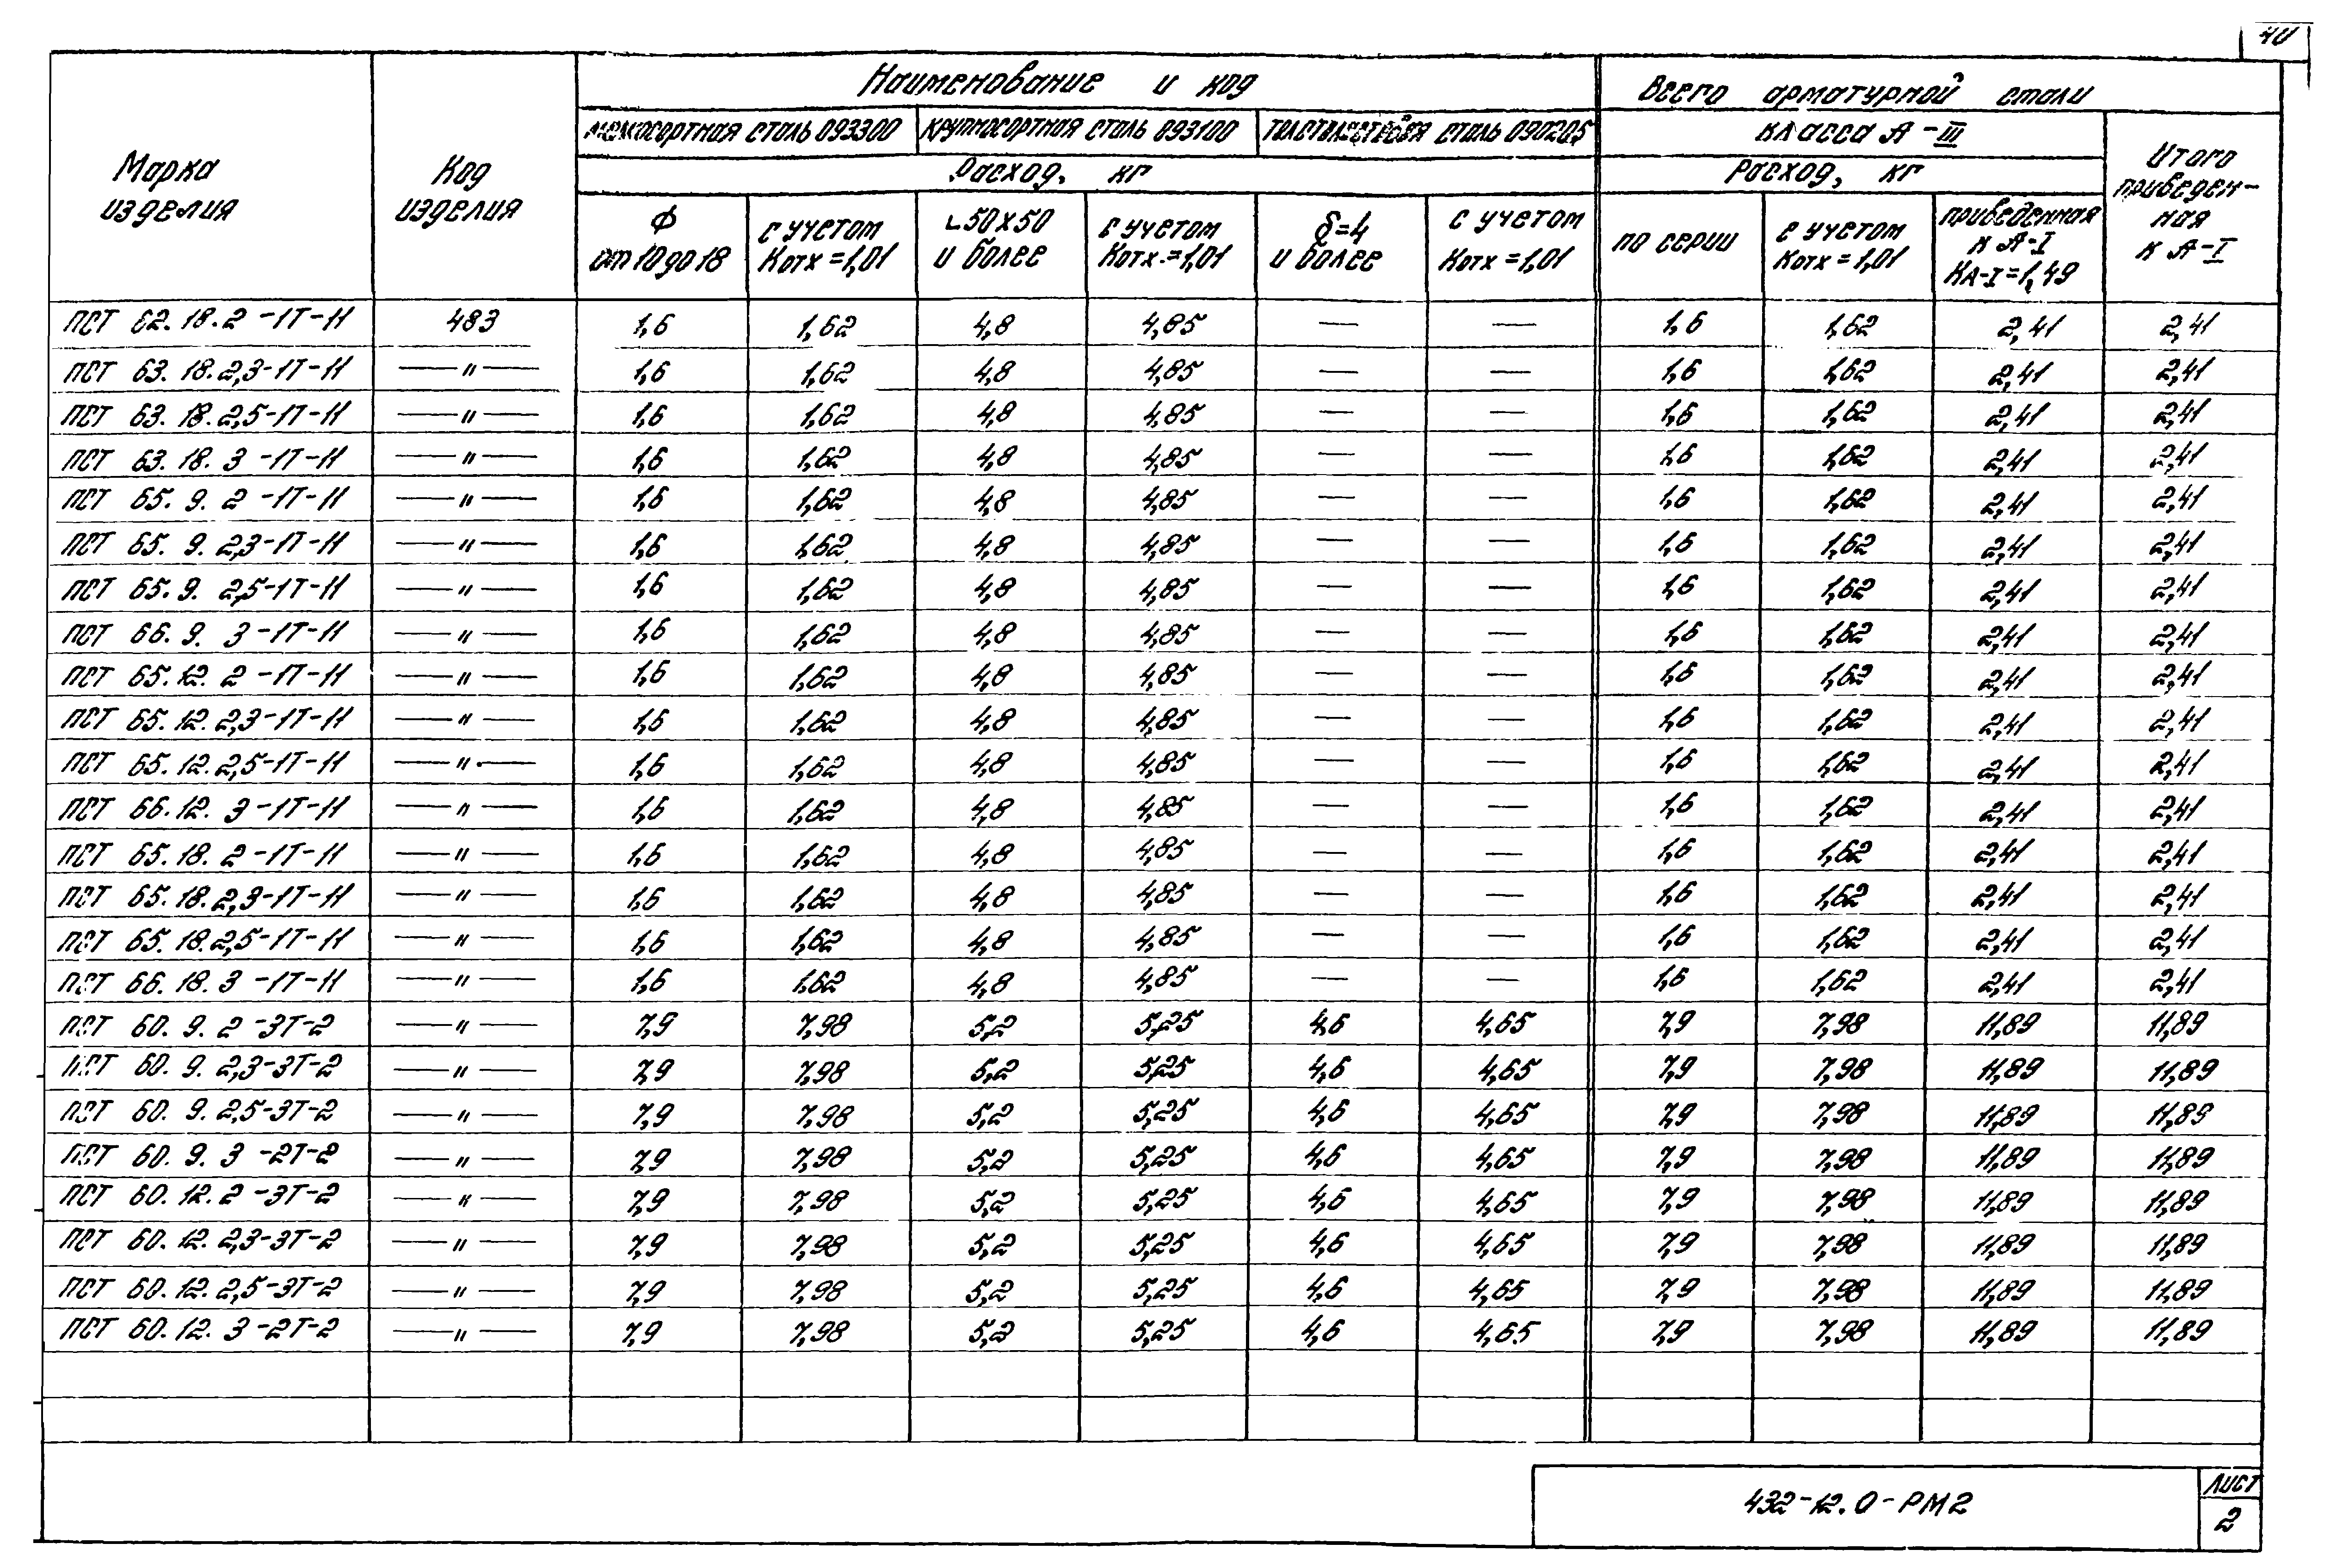 40
Наименование и код
Всего арматурной стали
класса А-III
Марка изделия
Код изделия
мелкосортная сталь 093300
крупносортная сталь 093100
толстолистовая сталь 090205
Итого приведен-ная к А-I
Расход, кг
Расход, кг
ф от 10 до 18
с учетом Котх =1,01
∟50х50 и более
с учетом Котх.=1,01
δ=4 и более
с учетом Котх =1,01
по серии
с учетом Котх =1,01
приведенная к А-I КА-I=1,49
ПСТ 62.18.2 -1Т-11 483 1,6 1,62 4,8 4,85 — — 1,6 1,62 2,41 2,41
ПСТ 63.18.2,3-1Т-11 —"— 1,6 1,62 4,8 4,85 — — 1,6 1,62 2,41 2,41
ПСТ 63.18.2,5-1Т-11 —"— 1,6 1,62 4,8 4,85 — — 1,6 1,62 2,41 2,41
ПСТ 63.18.3 -1Т-11 —"— 1,6 1,62 4,8 4,85 — — 1,6 1,62 2,41 2,41
ПСТ 65.9.2 -1Т-11 —"— 1,6 1,62 4,8 4,85 — — 1,6 1,62 2,41 2,41
ПСТ 65.9.2,3-1Т-11 —"— 1,6 1,62 4,8 4,85 — — 1,6 1,62 2,41 2,41
ПСТ 65.9.2,5-1Т-11 —"— 1,6 1,62 4,8 4,85 — — 1,6 1,62 2,41 2,41
ПСТ 66.9.3 -1Т-11 —"— 1,6 1,62 4,8 4,85 — — 1,6 1,62 2,41 2,41
ПСТ 65.12.2 -1Т-11 —"— 1,6 1,62 4,8 4,85 — — 1,6 1,62 2,41 2,41
ПСТ 65.12.2,3-1Т-11 —"— 1,6 1,62 4,8 4,85 — — 1,6 1,62 2,41 2,41
ПСТ 65.12.2,5-1Т-11 —"— 1,6 1,62 4,8 4,85 — — 1,6 1,62 2,41 2,41
ПСТ 66.12.3 -1Т-11 —"— 1,6 1,62 4,8 4,85 — — 1,6 1,62 2,41 2,41
ПСТ 65.18.2 -1Т-11 —"— 1,6 1,62 4,8 4,85 — — 1,6 1,62 2,41 2,41
ПСТ 65.18.2,3-1Т-11 —"— 1,6 1,62 4,8 4,85 — — 1,6 1,62 2,41 2,41
ПСТ 65.18.2,5-1Т-11 —"— 1,6 1,62 4,8 4,85 — — 1,6 1,62 2,41 2,41
ПСТ 66.18.3 -1Т-11 —"— 1,6 1,62 4,8 4,85 — — 1,6 1,62 2,41 2,41
ПСТ 60.9.2 -3Т-2 —"— 7,9 7,98 5,2 5,25 4,6 4,65 7,9 7,98 11,89 11,89
ПСТ 60.9.2,3-3Т-2 —"— 7,9 7,98 5,2 5,25 4,6 4,65 7,9 7,98 11,89 11,89
ПСТ 60.9.2,5-3Т-2 —"— 7,9 7,98 5,2 5,25 4,6 4,65 7,9 7,98 11,89 11,89
ПСТ 60.9.3 -2Т-2 —"— 7,9 7,98 5,2 5,25 4,6 4,65 7,9 7,98 11,89 11,89
ПСТ 60.12.2 -3Т-2 —"— 7,9 7,98 5,2 5,25 4,6 4,65 7,9 7,98 11,89 11,89
ПСТ 60.12.2,3-3Т-2 —"— 7,9 7,98 5,2 5,25 4,6 4,65 7,9 7,98 11,89 11,89
ПСТ 60.12.2,5-3Т-2 —"— 7,9 7,98 5,2 5,25 4,6 4,65 7,9 7,98 11,89 11,89
ПСТ 60.12.3 -2Т-2 —"— 7,9 7,98 5,2 5,25 4,6 4,65 7,9 7,98 11,89 11,89
432-12.0-РМ2
Лист
2